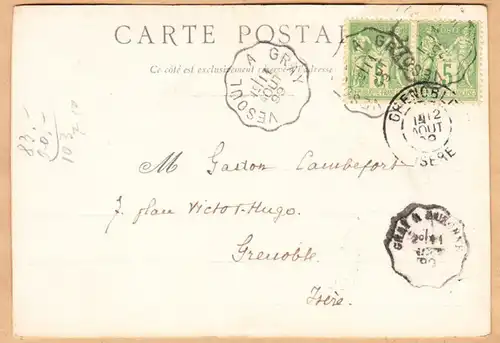 CARTE POSTALE
Ce côté est exclusivement réservé à l'adresse
VESOUL A GRAY
11
AOUT
99
5 5
GRENOBLE
12
AOUT
99
ISERE
83.-
20.-
103
M Gaston Cambefort
7. place Victor-Hugo.
Grenoble
Isère.
GRAY A